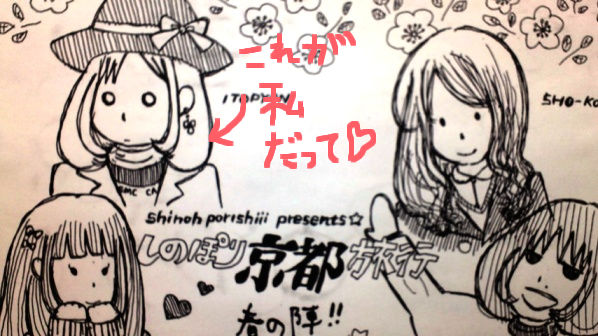 これが
私
だって♡
ITOPYON
SHO-KO
EMC CA
Shinoh porishiii presents☆
しのぽり京都旅行
春の陣!!